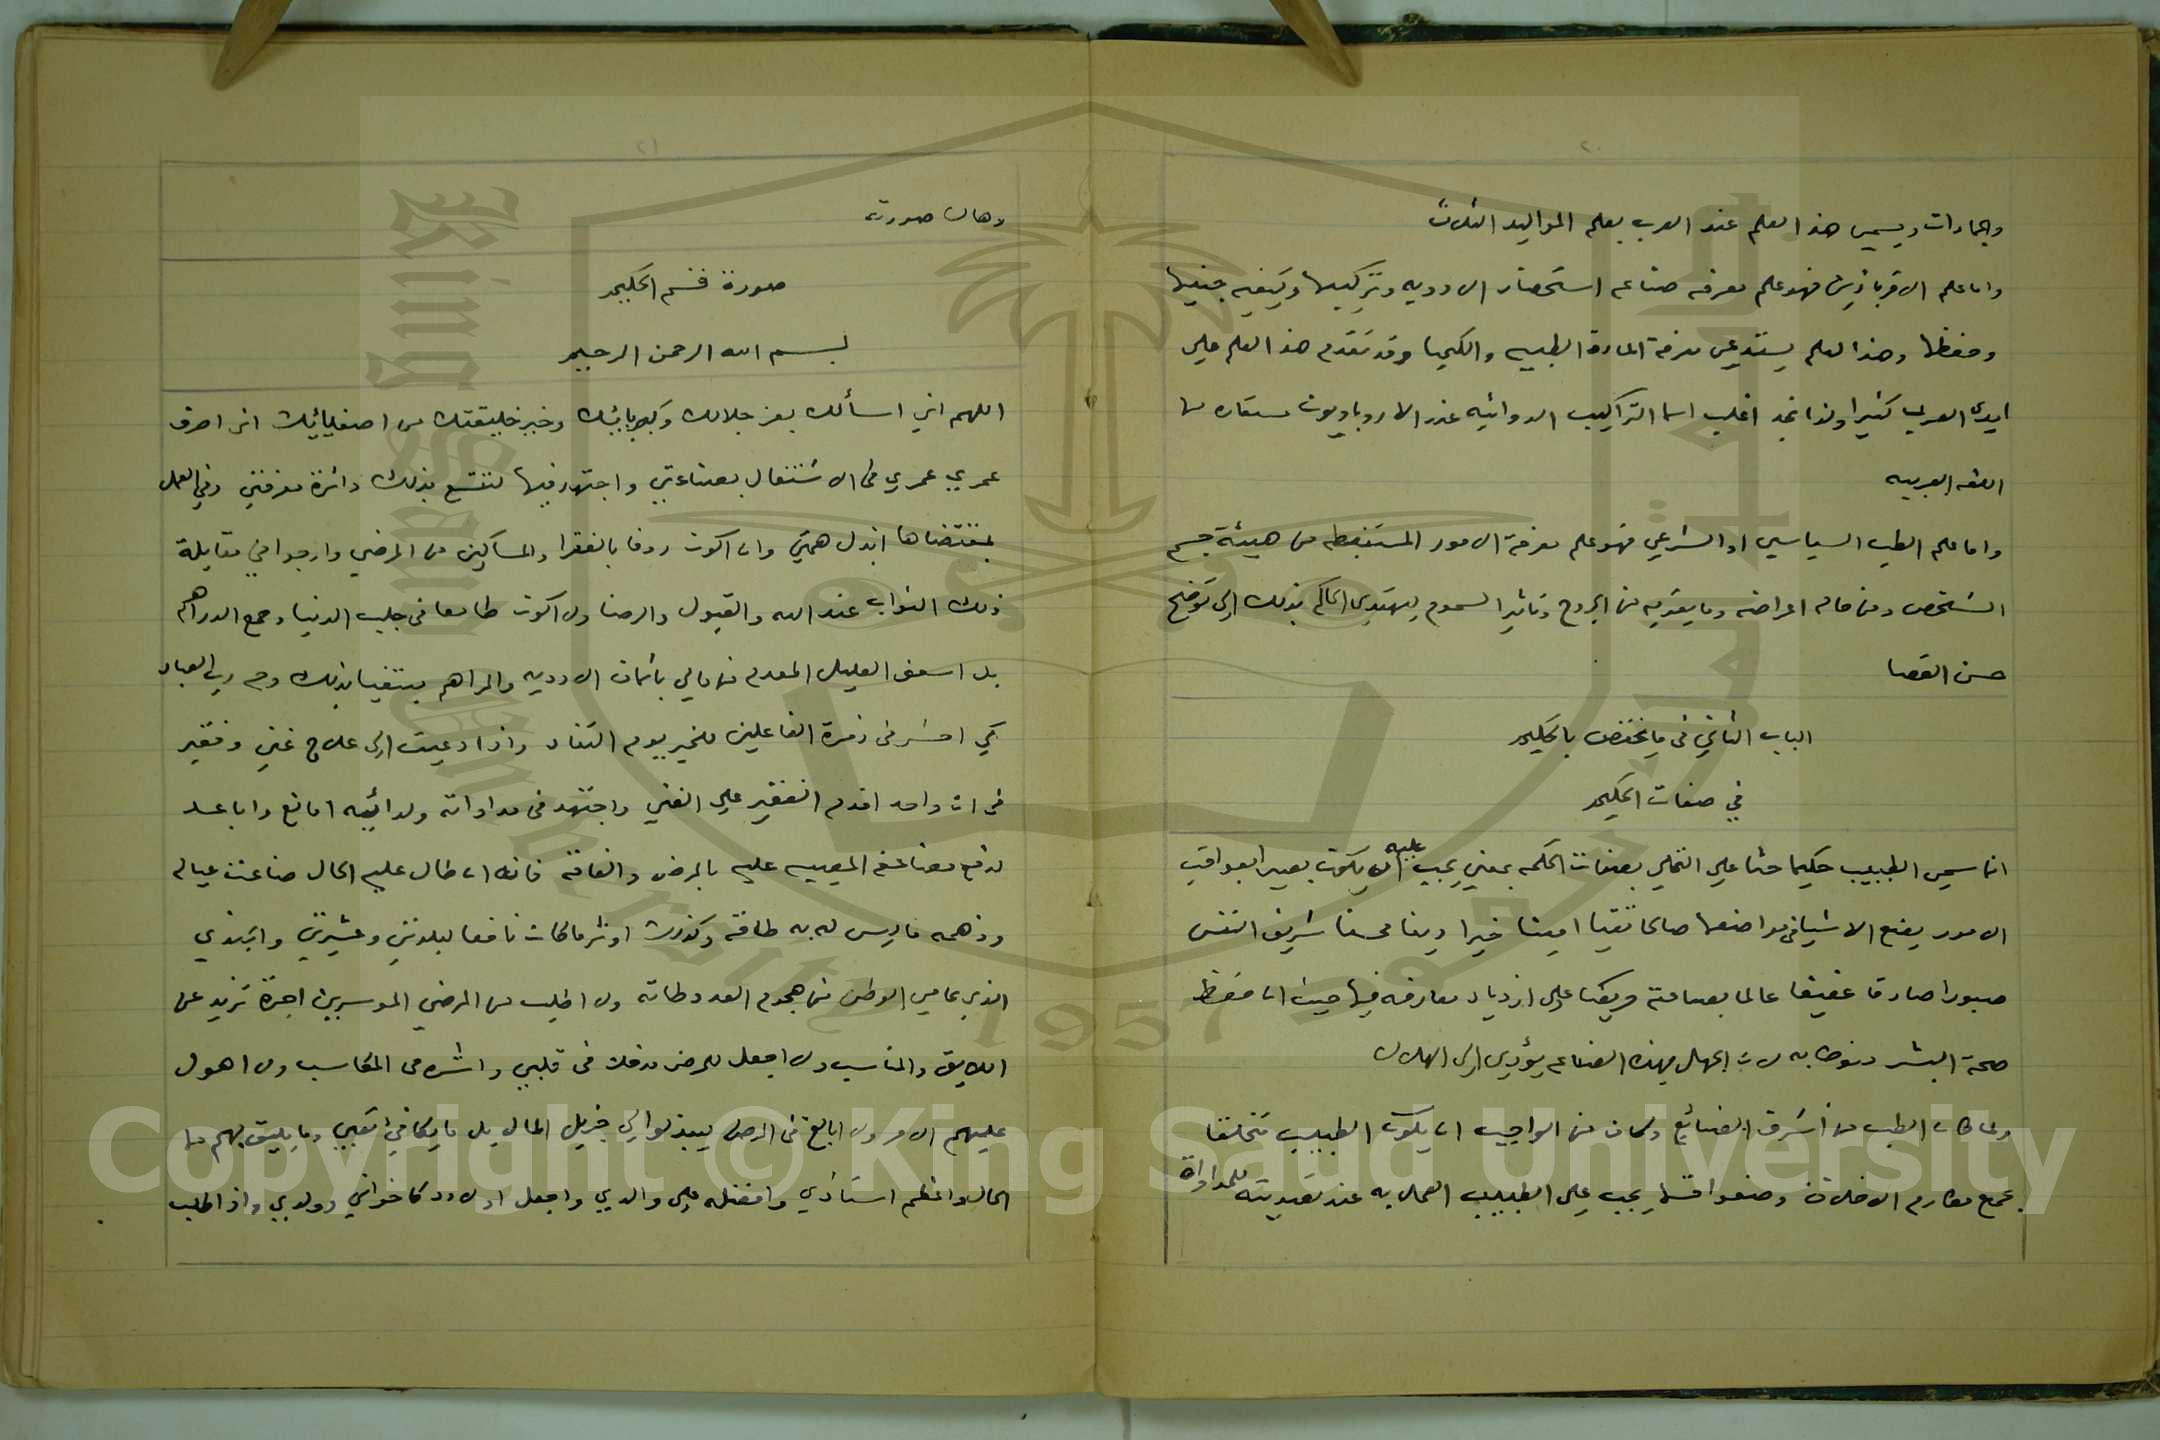 ٢٠
والجمادات ويسمى هذا العلم عند العرب بعلم المواليد الثلاث
واما علم الاقرباذين فهو علم معرفه صناعه استحضار الادويه وتركيبها وكيفيه جنيها
وحفظها وهذا العلم يستدعي معرفة المادة الطبيه والكيميا وقد تقدم هذا العلم على
ايدى العرب كثيرا ولذا نجد اغلب اسما التراكيب الدوائيه عند الاروباويون مستعاره من
اللغه العربيه
واما علم الطب السياسي او الشرعي فهو علم معرفة الامور المستنبطه من هيئة جسم
الشخص ومن حاله اعراضه وما يعتريه من الجروح وتاثير السموم ليهتدى الحاكم بذلك الى توضيح
حسن القضا
الباب الثاني في ما يختص بالحكيم
في صفات الحكيم
انما سمي الطبيب حكيما حثا على التحلي بصفات الحكمه بمعني يجب عليه ان يكون بصيرا بعواقب
الامور يضع الاشيا في مواضعها صالحا تقيا امينا خيرا دينا محسنا شريف النفس
صبورا صادقا عفيفا عالما بصناعته حريصا على ازدياد معارفه فيها حيث ان حفظ
صحة البشر منوطا به لان الجهل بهذه الصناعه يؤدي الى الهلاك
ولما كان الطب من أشرف الصنائع وكان من الواجب ان يكون الطبيب متخلقا
بجمع مكارم الاخلاق وضعوا قسما يجب على الطبيب العمل به عند تصديته للمداواة
٢١
وهاك صورته
صورة قسم الحكيم
بسم الله الرحمن الرحيم
اللهم اني اسألك بعز جلالك وكبريائك وخير خليقتك من اصفيائك ان اصرف
عمري عمري في الاشتغال بصناعتي واجتهد فيها لتتسع بذلك دائرة معرفتي وفي العمل
بمقتضاها ابذل همتي وان اكون روفا بالفقرا والمساكين من المرضي وارجوا في مقابلة
ذلك الثواب عند الله والقبول والرضا ولا اكون طامعا في جلب الدنيا وجمع الدراهم
بل اسعف العليل المعدم من مالي باثمان الادويه والمراهم مبتغيا بذلك وجه رب العباد
كي احشر في زمرة الفاعلين للخير يوم التناد واذا دعيت الى علاج غني وفقير
في ان واحد اقدم الفقير على الغني واجتهد في مداواته ولدائيه امانع واباعد
لدفع المصيبه عليه بالمرض والفاقة فانه ان طال عليه الحال ضاعت عياله
ودهمه ما ليس له به طاقة وكدرت ما كان نافعا لبلدتي وعشيرتي والجندي
الذي يحامي الوطن من هجوم العدو طاته ولا اطلب من المرضي الموسرين اجرة تزيد عن
اللايق والمناسب ولا اجعل للحرص مدخلا في قلبي واشره في المكاسب ولا اهول
عليهم الامر ولا ابالغ في المرض ليبذلوا لي جزيل المال بل ما يكافي تعبي وما يليق بهم من
الحال واعظم استاذي وافضله على والدي واجعل اولاده كاخواني وولدي واذا طلب
Copyright © King Saud University
King Saud University
جامعة الملك سعود
1957